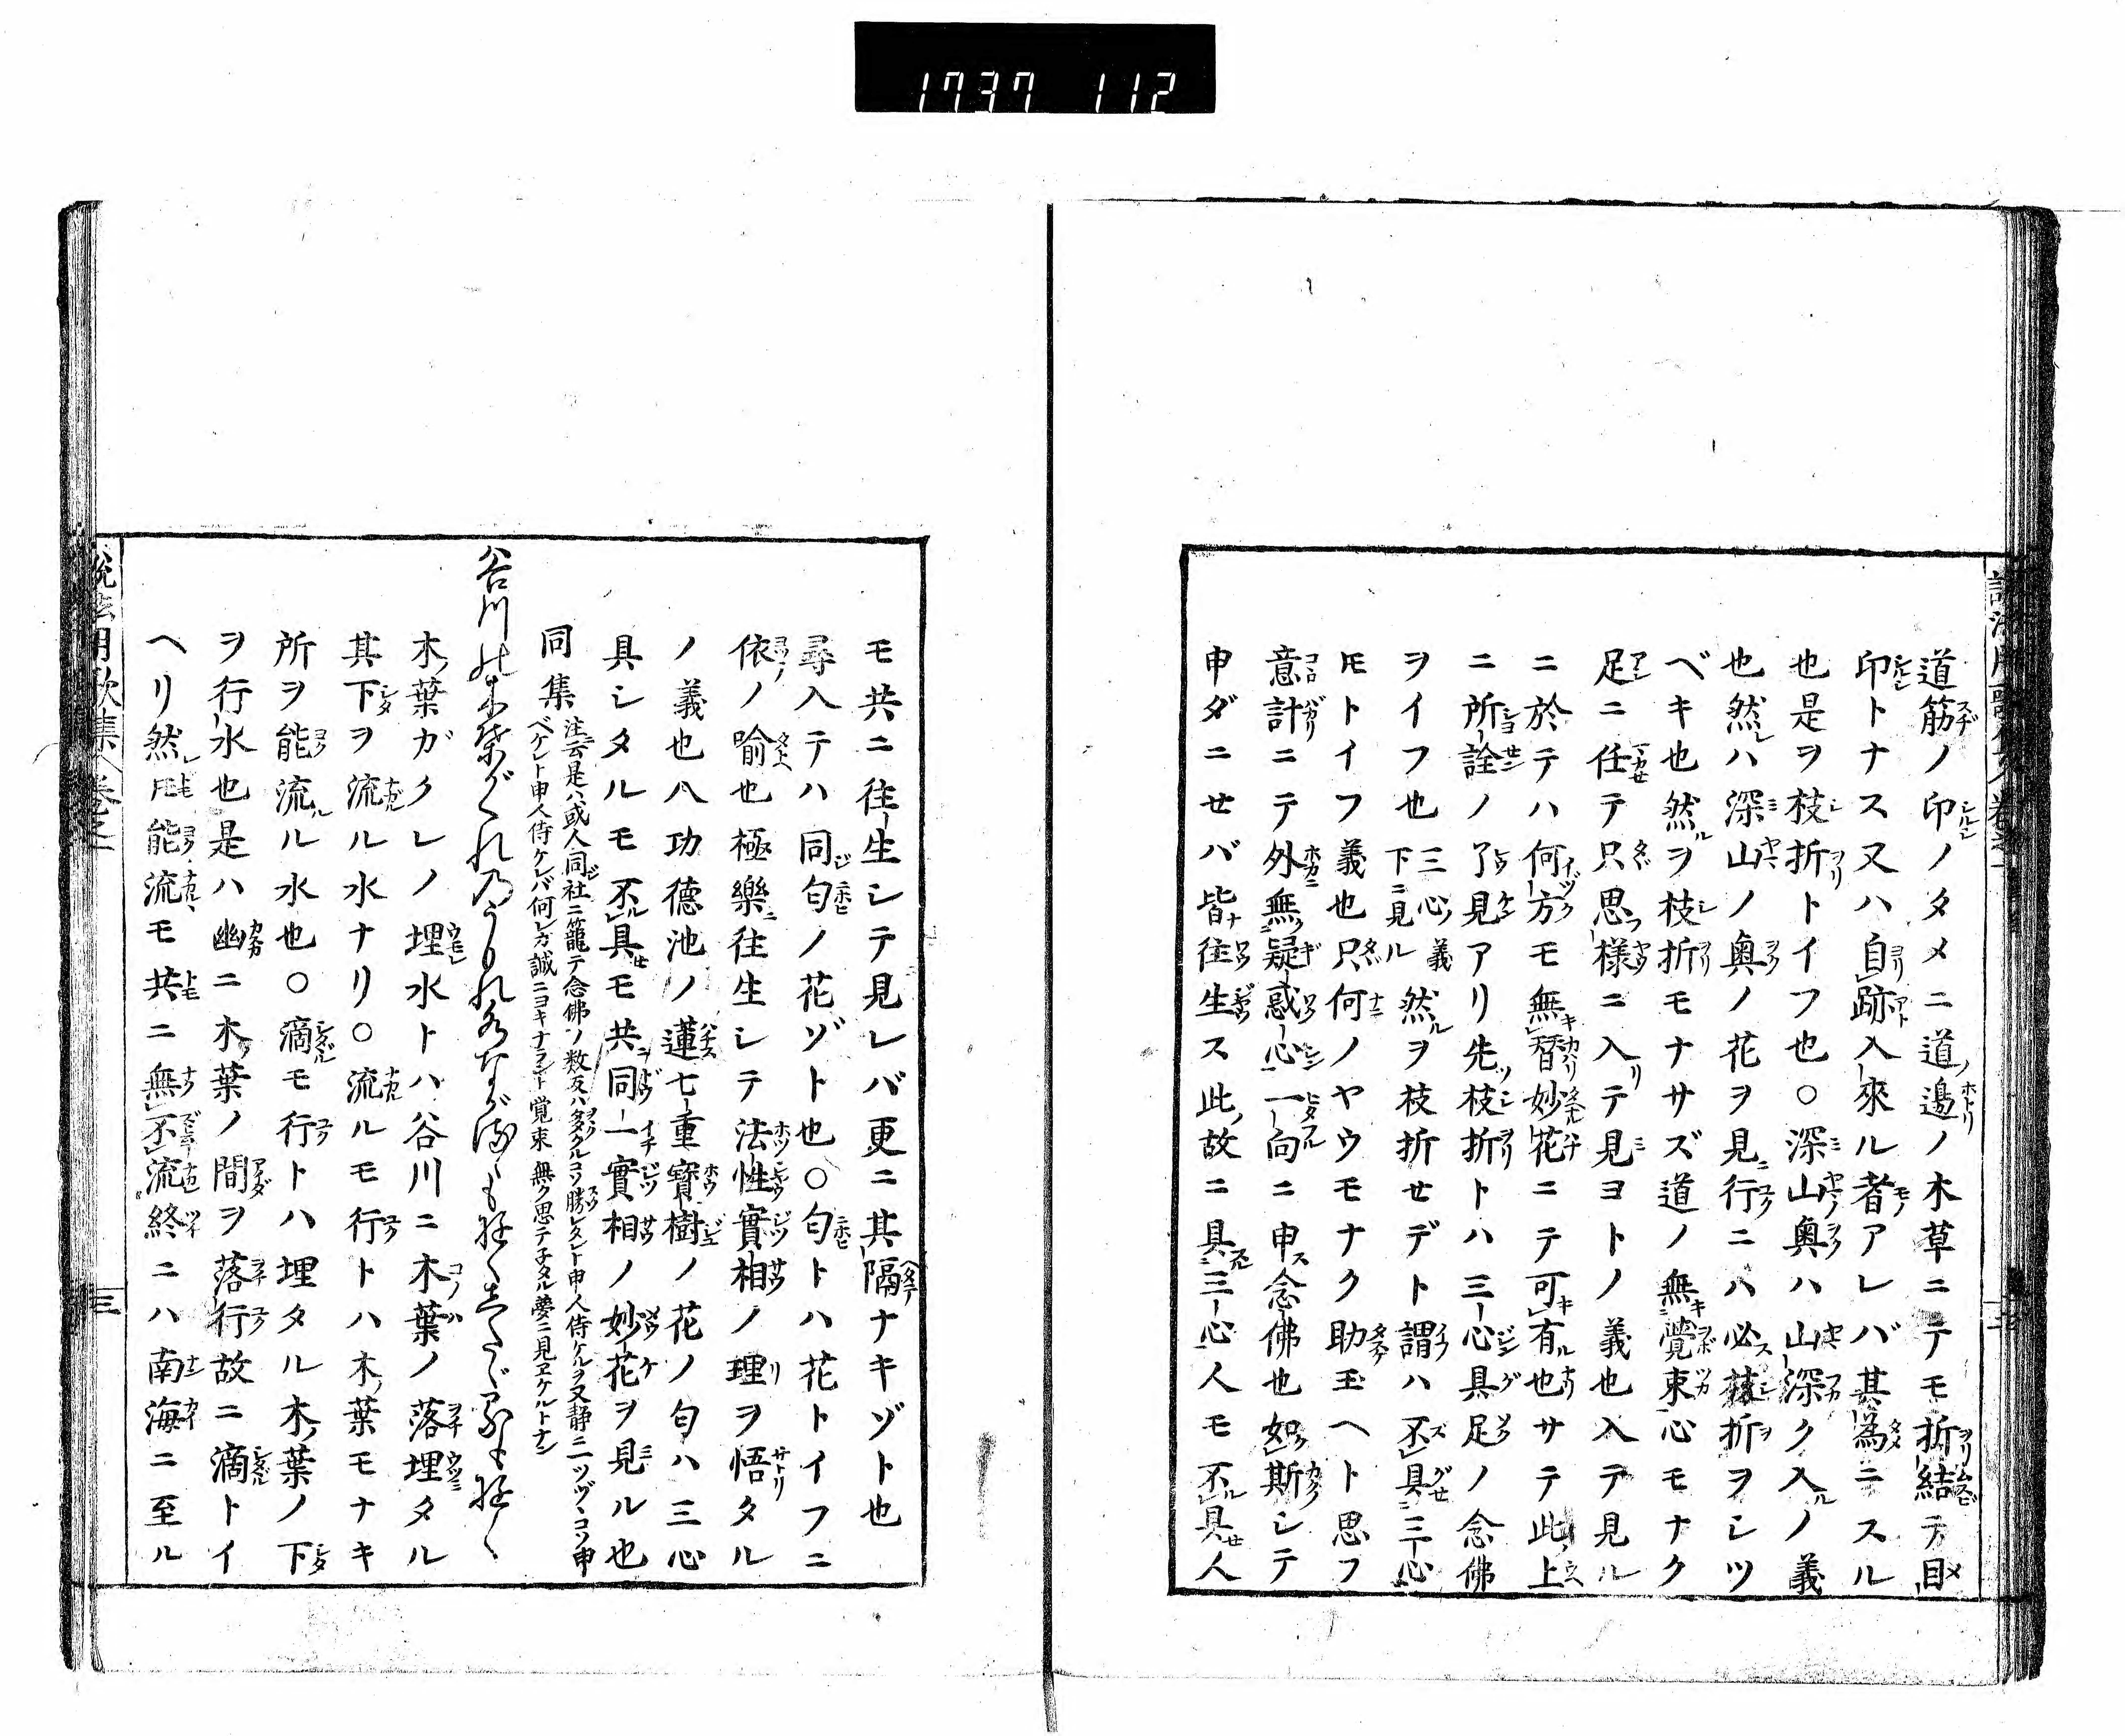 1737 112
道筋ノ印ノタメニ道ノ邊ノ木草ニテモ折結テ目
印トナス又ハ自跡入來ル者アレバ其為ニスル
也是ヲ枝折トイフ也○深山奥ハ山深ク入ノ義
也然レハ深山ノ奥ノ花ヲ見ニ行ニハ必枝折ヲシツ
ベキ也然ルヲ枝折モナサズ道ノ無覺束心モナク
足ニ任テ只思フ様ニ入テ見ヨトノ義也入テ見ル
ニ於テハ何方モ無替妙花ニテ可有也サテ此上
ニ所詮ノ了見アリ先枝折トハ三心具足ノ念佛
ヲイフ也三心ノ義下ニ見ル然ルヲ枝折セデト謂ハ不具三心
トモトイフ義也只何ノヤウモナク助玉ヘト思フ
意計ニテ外無疑惑心一向ニ申ス念佛也如斯シテ
申ダニセバ皆往生ス此ノ故ニ具三心人モ不具人
モ共ニ往生シテ見レバ更ニ其隔ナキゾト也
尋入テハ同匂ノ花ゾト也○匂トハ花トイフニ
依ノ喩也極樂ニ往生シテ法性實相ノ理ヲ悟タル
ノ義也八功德池ノ蓮七重寶樹ノ花ノ匂ハ三心
具シタルモ不具モ共ニ同一實相ノ妙花ヲ見ル也
同集
注云是ハ或人同社ニ籠テ念佛ノ数反ハヲタクルコソ勝レタレト申人侍ケルヲ又静ニ一ツヅヽコソ申
ベケレト申人侍ケレバ何レカ誠ニヨキナラント覚束無ク思テ子タル夢ニ見ヱケルトナン
谷川の木葉がくれのうもれ水ながるゝも行くしたゞるも行く
木ノ葉ガクレノ埋水トハ谷川ニ木葉ノ落埋タル
其下ヲ流ル水ナリ○流ルモ行トハ木ノ葉モナキ
所ヲ能流ル水也○滴モ行トハ埋タル木ノ葉ノ下
ヲ行水也是ハ幽ニ木ノ葉ノ間ヲ落行故ニ滴トイ
ヘリ然レトモ能流モ共ニ無不流終ニハ南海ニ至ル
説法用歌集 巻之 三